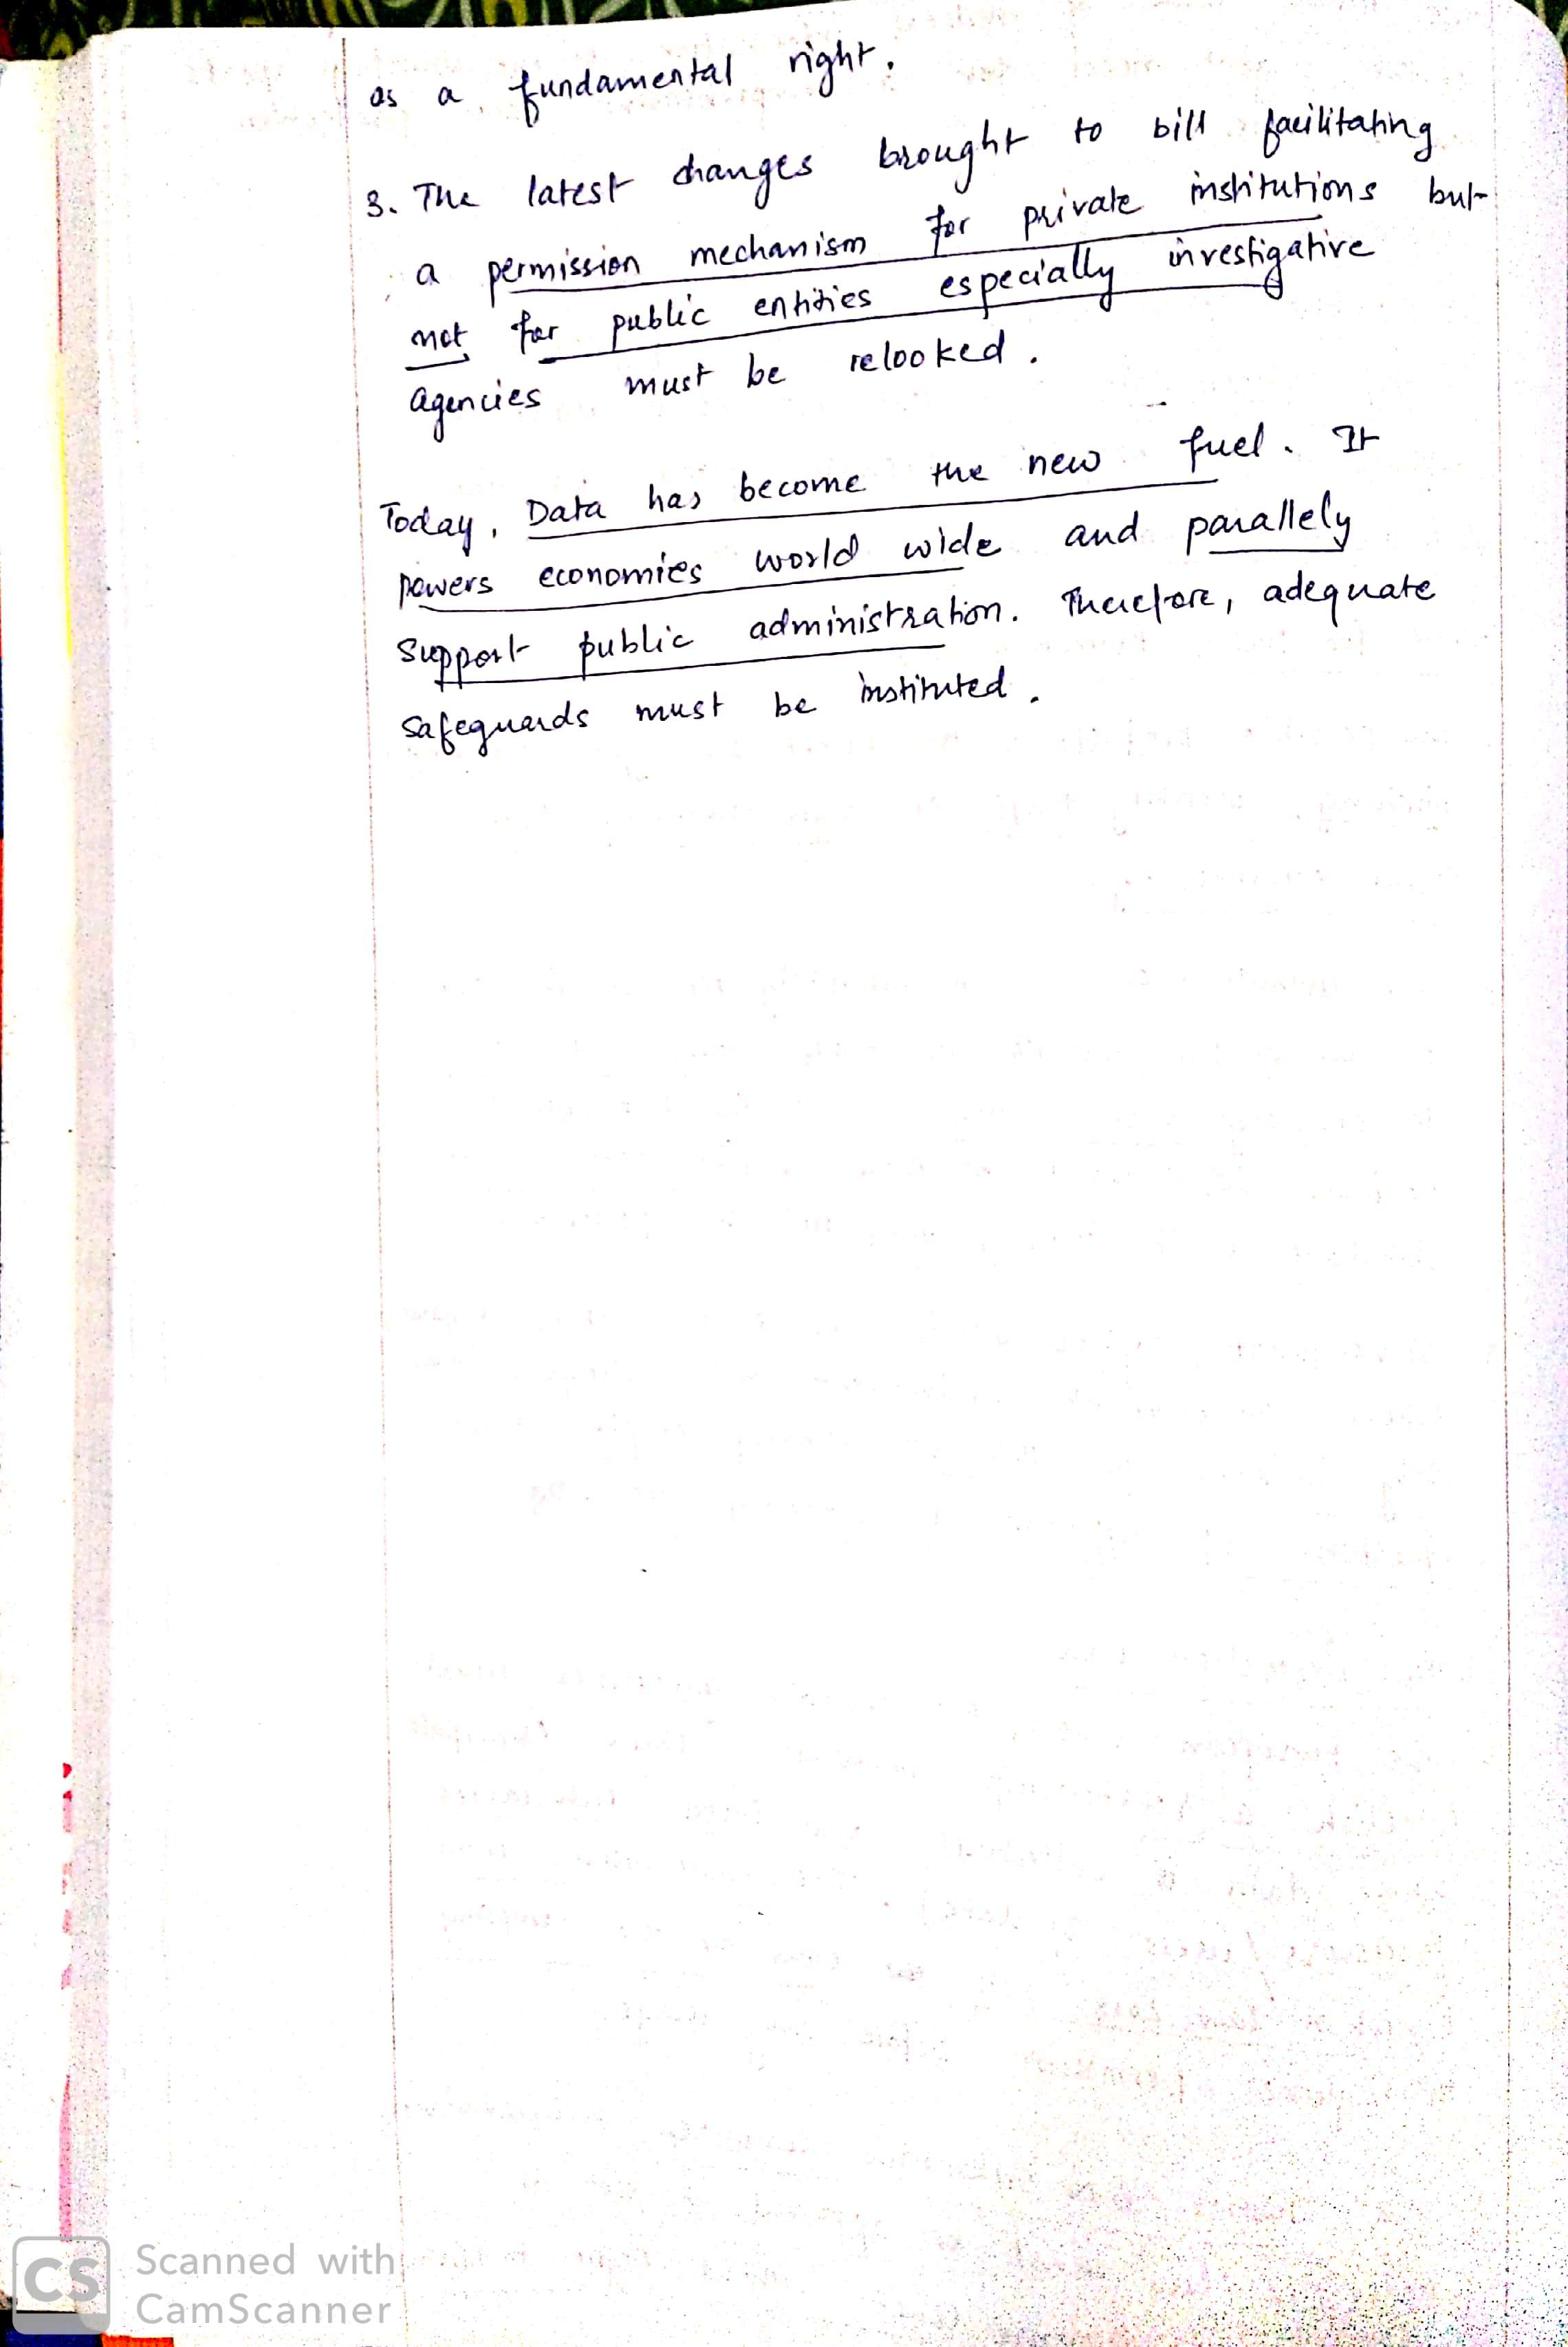 as a fundamental right.
3. The latest changes brought to bill facilitating
a permission mechanism for private institutions but
not for public entities especially investigative
agencies must be relooked.
Today, Data has become the new fuel. It
powers economies world wide and parallely
support public administration. Therefore, adequate
safeguards must be instituted.
CS Scanned with
CamScanner